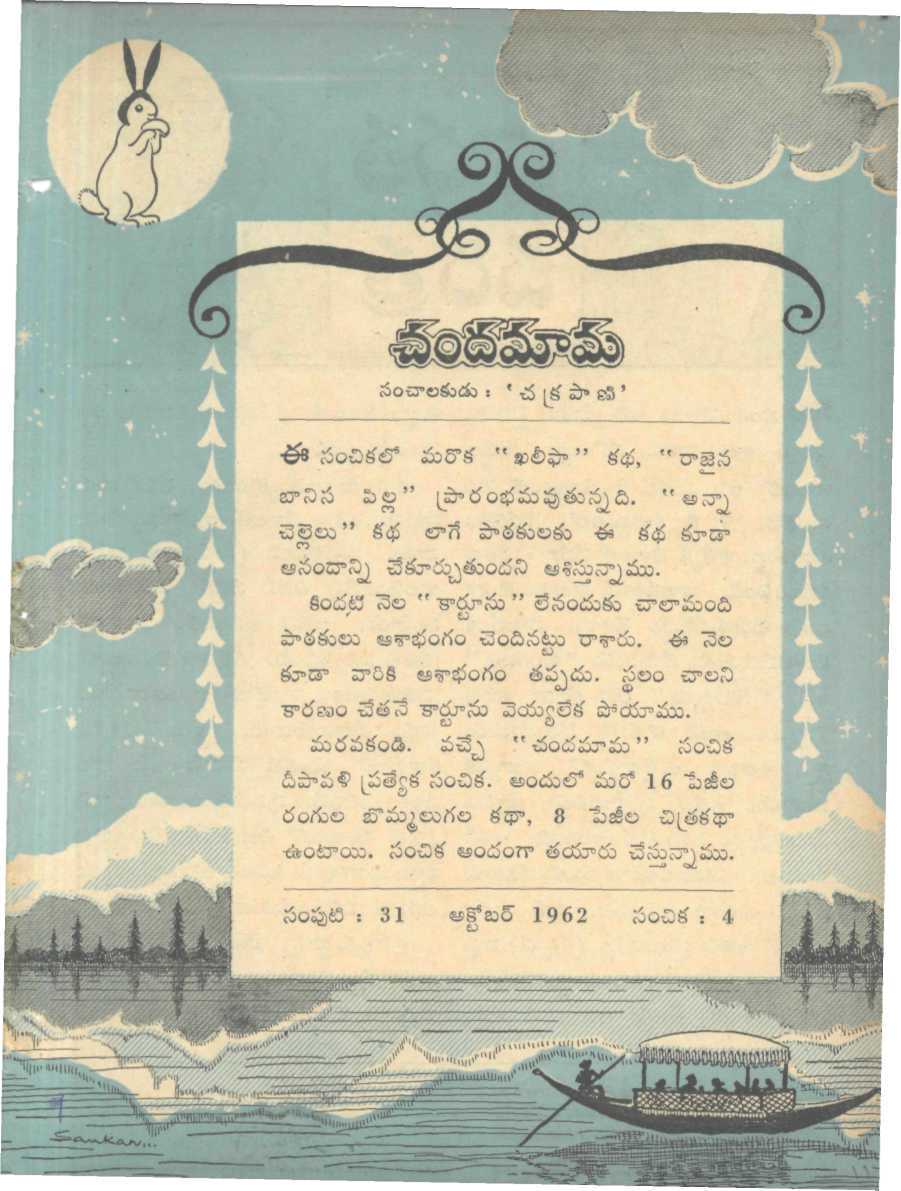 చందమామ
సంచాలకుడు : ‘చక్రపాణి’
ఈ సంచికలో మరొక “ఖలీఫా” కథ, “రాజైన
బానిస పిల్ల” ప్రారంభమవుతున్నది. “అన్నా
చెల్లెలు” కథ లాగే పాఠకులకు ఈ కథ కూడా
ఆనందాన్ని చేకూర్చుతుందని ఆశిస్తున్నాము.
కిందటి నెల “కార్టూను” లేనందుకు చాలామంది
పాఠకులు ఆశాభంగం చెందినట్టు రాశారు. ఈ నెల
కూడా వారికి ఆశాభంగం తప్పదు. స్థలం చాలని
కారణం చేతనే కార్టూను వెయ్యలేక పోయాము.
మరవకండి. వచ్చే “చందమామ” సంచిక
దీపావళి ప్రత్యేక సంచిక. అందులో మరో 16 పేజీల
రంగుల బొమ్మలుగల కథా, 8 పేజీల చిత్రకథా
ఉంటాయి. సంచిక అందంగా తయారు చేస్తున్నాము.
సంపుటి : 31 అక్టోబర్ 1962 సంచిక : 4
Sankar...